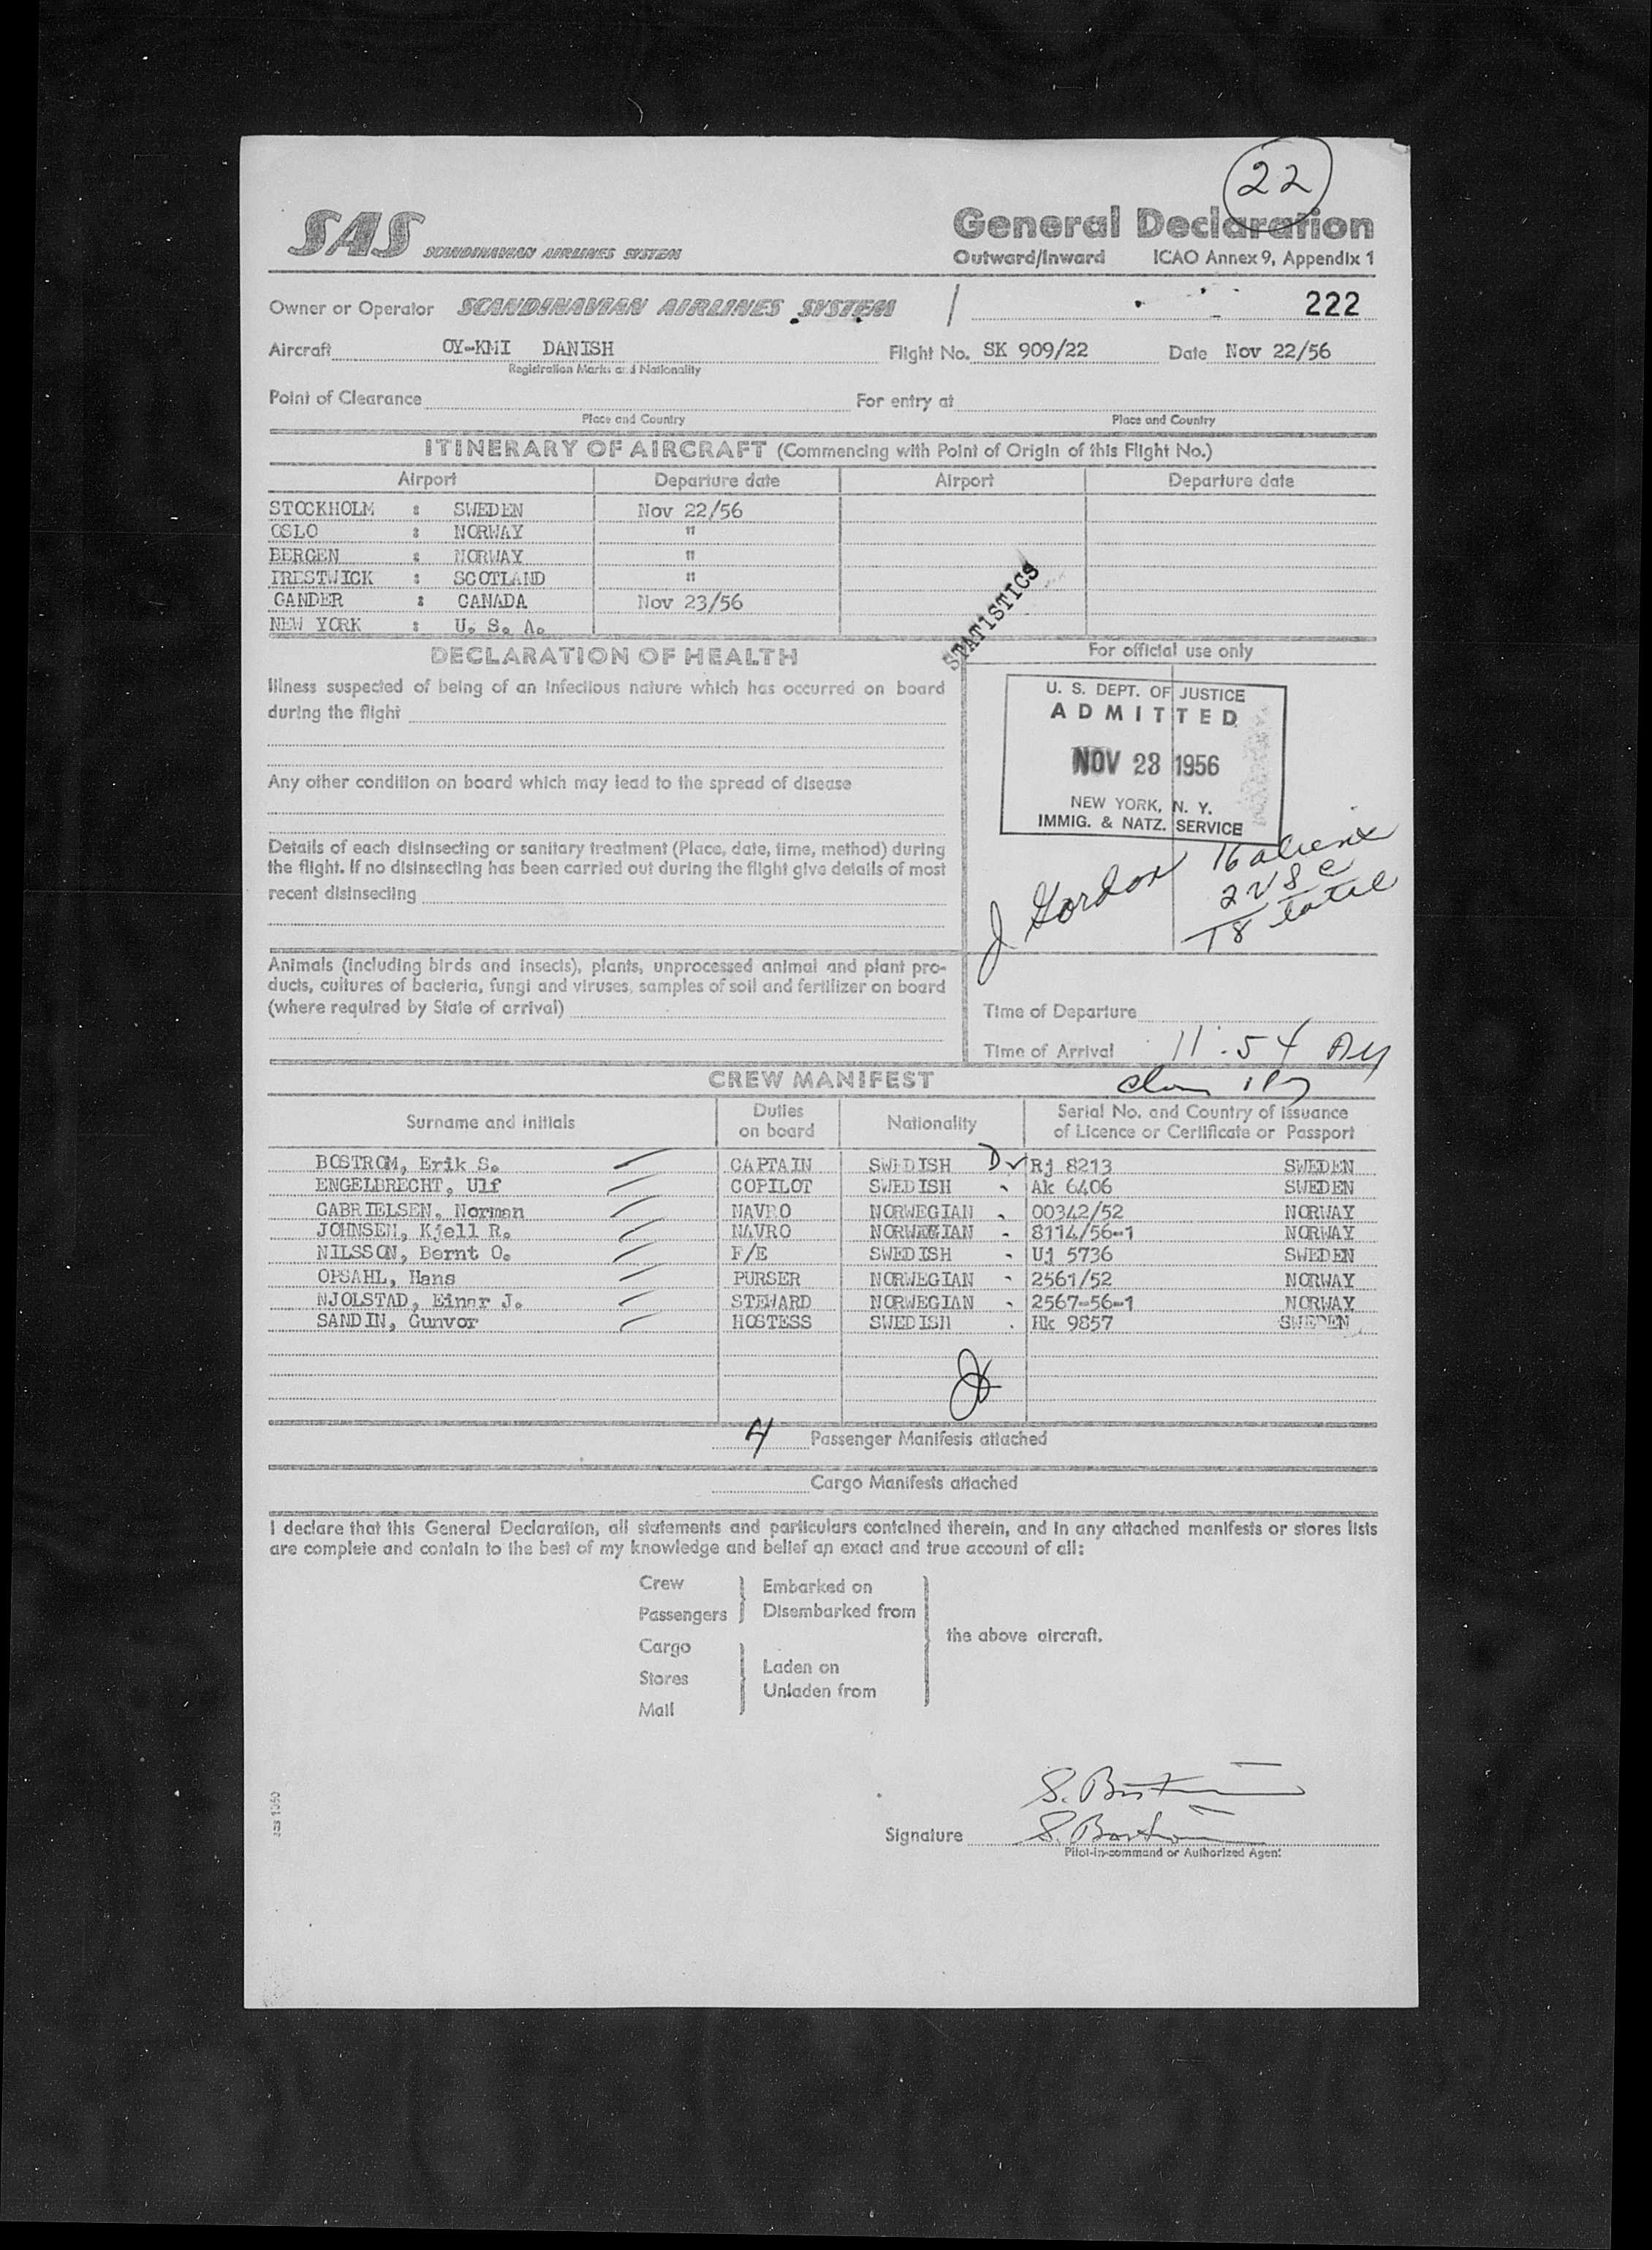 22
SAS SCANDINAVIAN AIRLINES SYSTEM
General Declaration
Outward/Inward ICAO Annex 9, Appendix 1
Owner or Operator SCANDINAVIAN AIRLINES SYSTEM / 222
Aircraft OY-KMI DANISH Flight No. SK 909/22 Date Nov 22/56
Registration Marks and Nationality
Point of Clearance For entry at
Place and Country Place and Country
ITINERARY OF AIRCRAFT (Commencing with Point of Origin of this Flight No.)
Airport Departure date Airport Departure date
STOCKHOLM : SWEDEN Nov 22/56
OSLO : NORWAY "
BERGEN : NORWAY "
IRESTWICK : SCOTLAND "
GANDER : CANADA Nov 23/56
NEW YORK : U. S. A.
STATISTICS
DECLARATION OF HEALTH
For official use only
Illness suspected of being of an infectious nature which has occurred on board
during the flight
Any other condition on board which may lead to the spread of disease
Details of each disinsecting or sanitary treatment (Place, date, time, method) during
the flight. If no disinsecting has been carried out during the flight give details of most
recent disinsecting
Animals (including birds and insects), plants, unprocessed animal and plant pro-
ducts, cultures of bacteria, fungi and viruses, samples of soil and fertilizer on board
(where required by State of arrival)
U. S. DEPT. OF JUSTICE
ADMITTED
NOV 23 1956
NEW YORK, N. Y.
IMMIG. & NATZ. SERVICE
J Gordon
16 aliens
2 USC
18 total
Time of Departure
Time of Arrival 11:54 AM
CREW MANIFEST
Surname and initials Duties on board Nationality Serial No. and Country of Issuance
of Licence or Certificate or Passport
BOSTROM, Erik S. CAPTAIN SWEDISH D Rj 8213 SWEDEN
ENGELBRECHT, Ulf COPILOT SWEDISH Ak 6406 SWEDEN
GABRIELSEN, Norman NAVRO NORWEGIAN 00342/52 NORWAY
JOHNSEN, Kjell R. NAVRO NORWEGIAN 8114/56-1 NORWAY
NILSSON, Bernt O. F/E SWEDISH Uj 5736 SWEDEN
OPSAHL, Hans PURSER NORWEGIAN 2561/52 NORWAY
NJOLSTAD, Einar J. STEWARD NORWEGIAN 2567-56-1 NORWAY
SANDIN, Gunvor HOSTESS SWEDISH Hk 9857 SWEDEN
4 Passenger Manifests attached
Cargo Manifests attached
I declare that this General Declaration, all statements and particulars contained therein, and in any attached manifests or stores lists
are complete and contain to the best of my knowledge and belief an exact and true account of all:
Crew
Passengers
Embarked on
Disembarked from
Cargo
Stores
Mail
Laden on
Unladen from
the above aircraft.
S. Boström
Signature S. Boström
Pilot-in-command or Authorized Agent